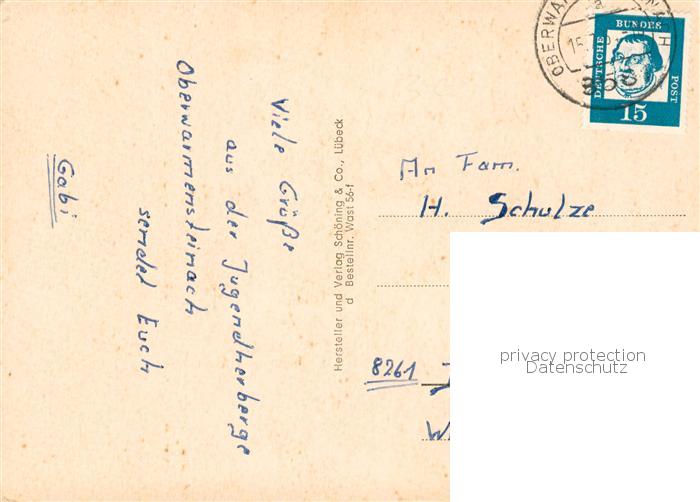 Viele Grüße
aus der Jugendherberge
Oberwarmensteinach
sendet Euch
Gabi
Hersteller und Verlag Schöning & Co., Lübeck
d Bestellnr. Wast 56-f
OBERWAR
15
DEUTSCHE
BUNDES
POST
15
An Fam.
H. Schulze
8261
privacy protection
Datenschutz